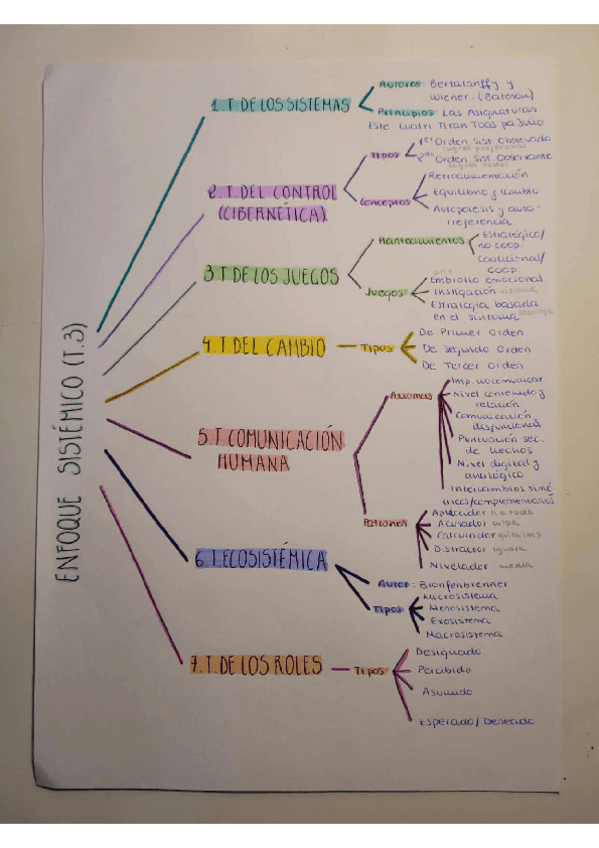 ENFOQUE SISTÉMICO (T.3)
1.T DE LOS SISTEMAS
Autores: Bertalanffy y
Wiener. (Bateson)
Principios: Las Asignaturas
Este Cuatri Tiran Toas pa Julio
2.T DEL CONTROL
(CIBERNÉTICA)
Tipos
1er Orden. Sist. Observado
2do Orden. Sist. Observante
Conceptos
Retroalimentación
Equilibrio y cambio
Autopoiesis y auto-
rreferencia
3.T DE LOS JUEGOS
Planteamientos
Estratégico/
no coop.
Coalicional/
coop.
Juegos
Embrollo emocional
Instigación
Estrategia basada
en el síntoma
4.T DEL CAMBIO
Tipos
De Primer Orden
De Segundo Orden
De Tercer Orden
5.T COMUNICACIÓN
HUMANA
Axiomas
Imp. no comunicar
Nivel contenido y
relación
Comunicación
disfuncional
Puntuación sec.
de hechos
Nivel digital y
analógico
Intercambios simé
tricos/complementarios
Patrones
Aplacador sí a todo
Acusador culpa
Calculador
Distractor ignora
Nivelador media
6.T.ECOSISTÉMICA
Autor: Bronfenbrenner
Tipos
Microsistema
Mesosistema
Exosistema
Macrosistema
7.T.DE LOS ROLES
Tipos
Designado
Percibido
Asumido
Esperado/Deseado